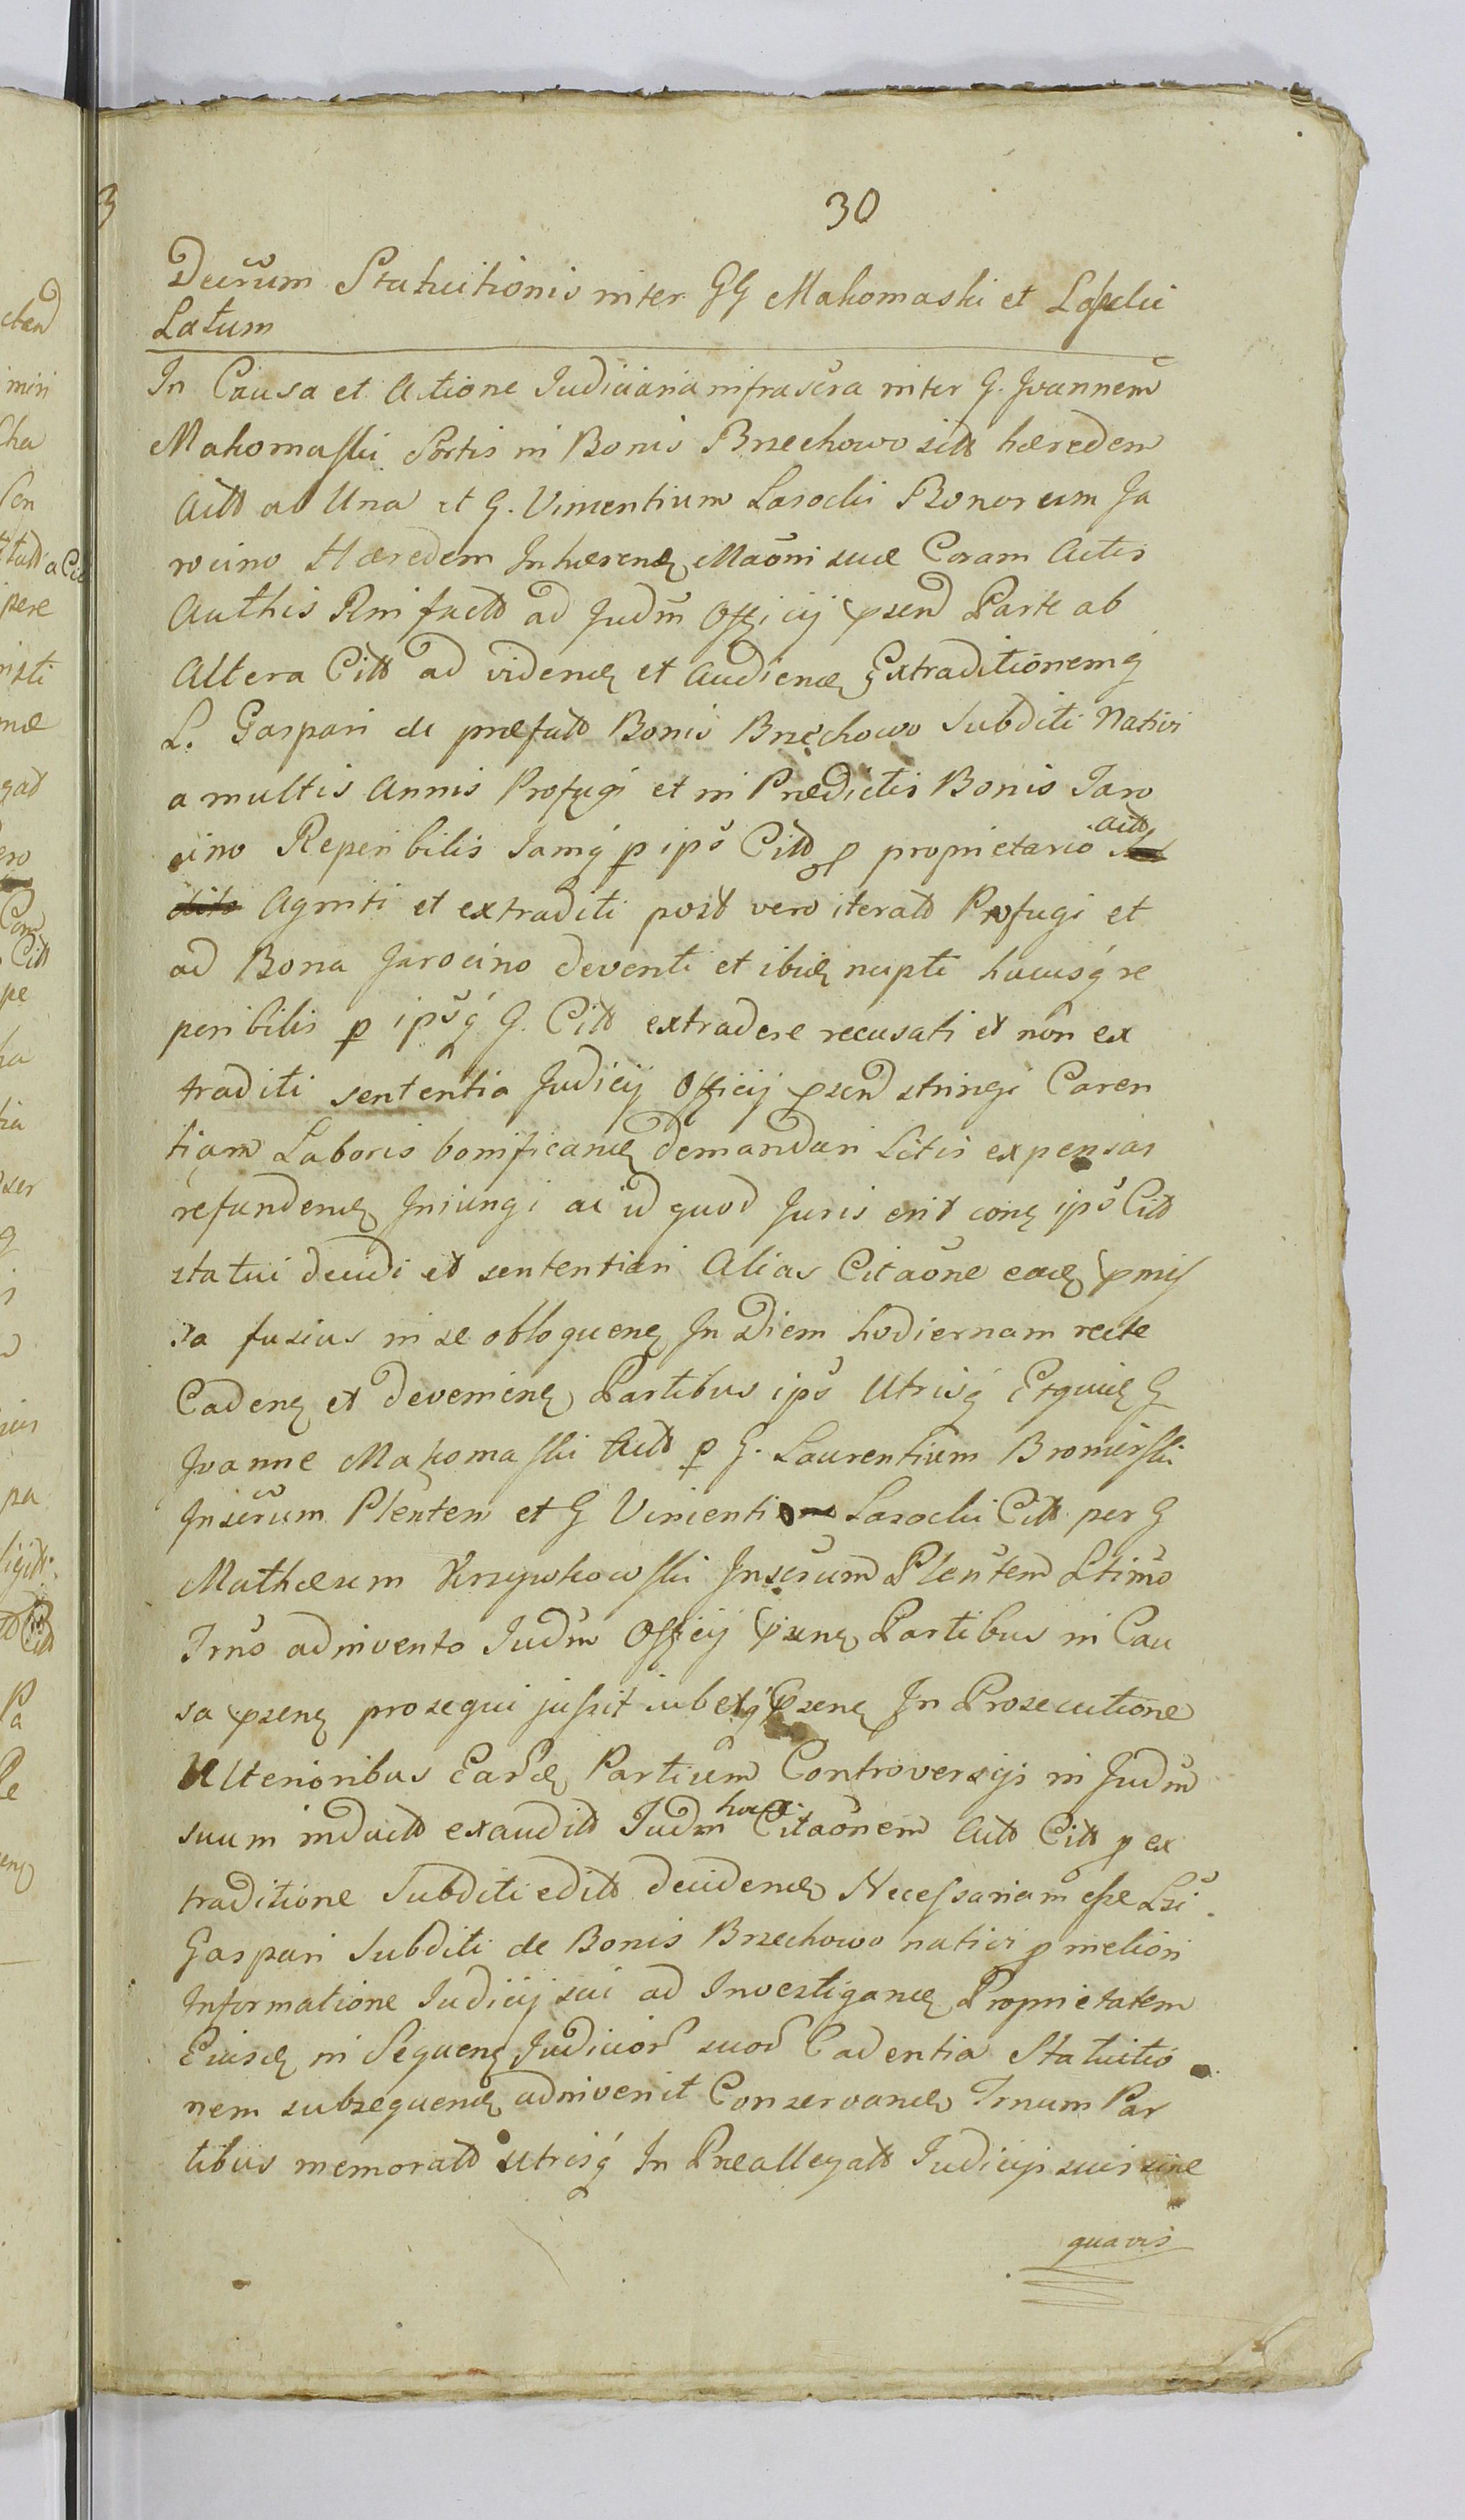 30
Decrum Statuitionis inter GG Makomaski et Lasocki
Latum
In Causa et Actione Judiciaria infrascra inter G. Joannem
Makomaski Sortis in Bonis Brzechowo sitt hæredem
Actt ab Una et G. Vincentium Lasocki Bonorum Ja
rocino Hæredem Inhæren Maõni suæ Coram Actis
Authis Rni factt ad Judm Officij psen Parte ab
Altera Citt ad viden et Audien Extraditionemq
L. Gaspari de præfatt Bonis Brzechowo Subditi Nativi
a multis Annis Profugi et in Prædictis Bonis Jaro
cino Reperibilis Jamq p ips Citt p proprietario Actt
Agniti et extraditi post vero iteratt Profugi et
ad Bona Jarocino deventi et ibid nupti hucusq re
peribilis p ipsq G. Citt extradere recusati et non ex
traditi sententia Judicij Officij psen stringi Caren
tiam Laboris bonifican demandari Litis expensas
refunden Iniungi ac id quod Juris erit con ips Citt
statui decidi et sententiari Alias Citaõne ead pmis
sa fusius in se obloquen In Diem hodiernam recte
Caden et devenien Partibus ips Utrisq Etquid G
Joanne Makomaski Actt p G. Laurentium Bromirski
Inscrum Plenten et G Vincentio Lasocki Citt per G
Mathæum Krzywkowski Inscrum Plentem Ltimo
Trno adinvento Judm Officij psen Partibus in Cau
sa psen prosequi jussit iubetq psen In Prosecutione
Ulterioribus Eard Partium Controversijs in Judm
suum inductt exauditt Judm hocce Citaõnem Actt Citt p ex
traditione Subditi editt deciden Necessariam esse Lsi
Gaspari Subditi de Bonis Brzechowo nativi p meliori
Informatione Judicij sui ad Investigan Proprietatem
Eiusd in Sequen Judicior suor Cadentia Statuitio
nem subsequen adinvenit Conservan Trnum Par
tibus memoratt Utrisq In Præallegatt Judicijs suis sine
quavis